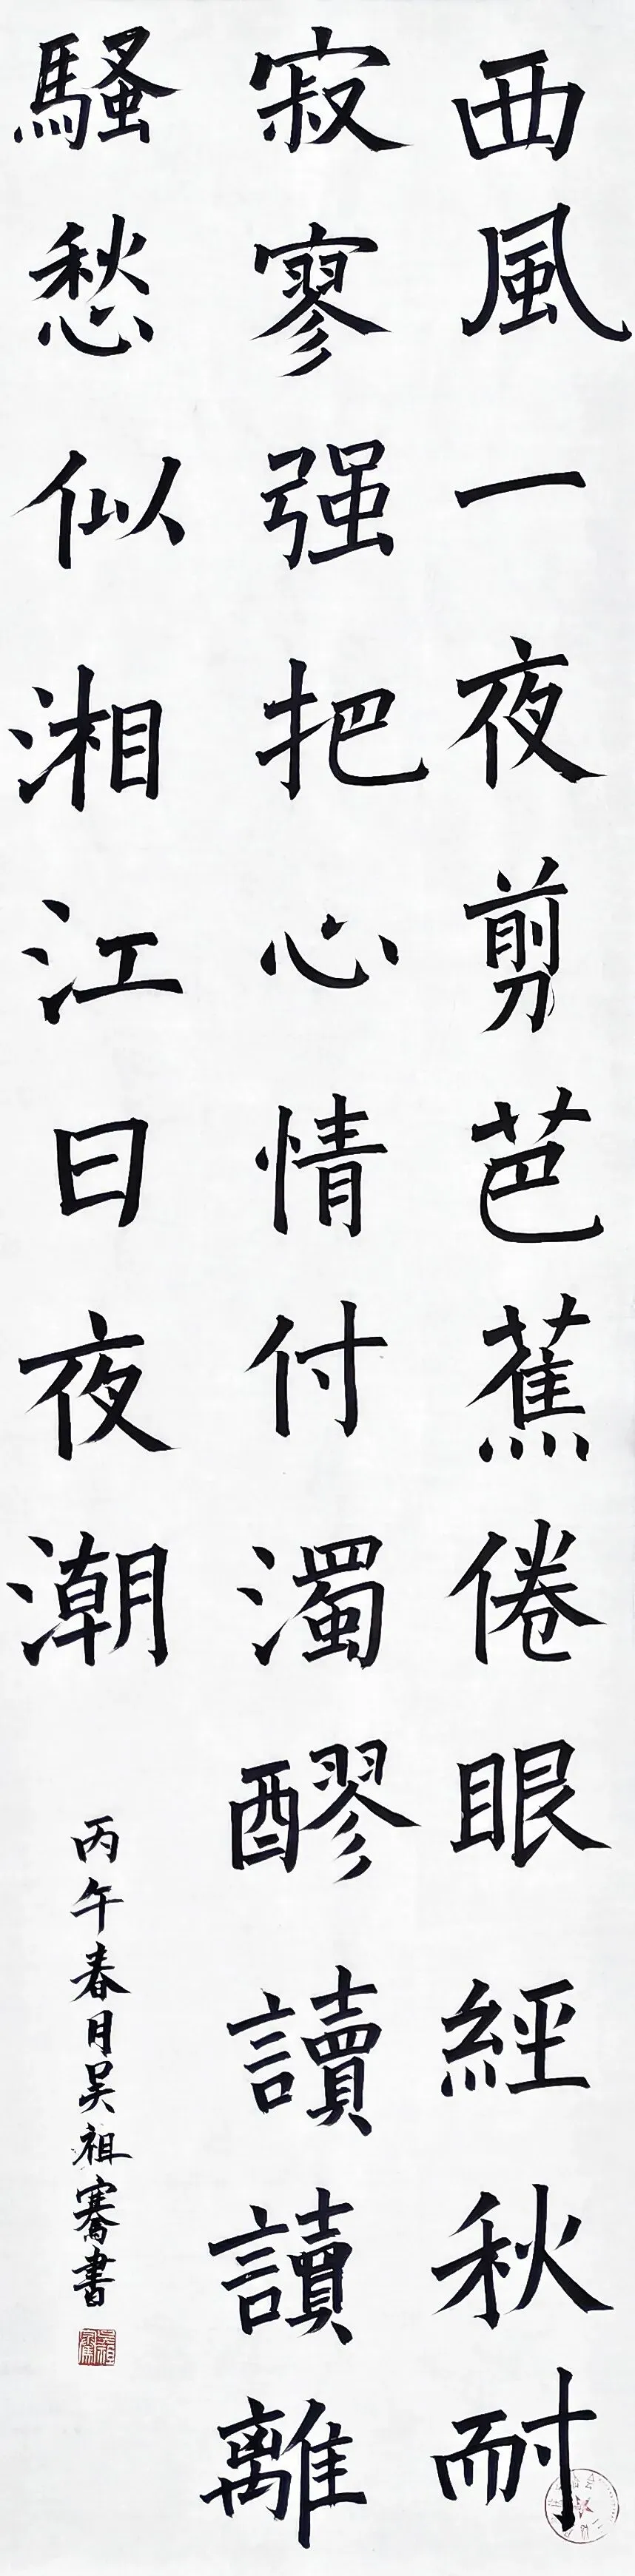 西風一夜剪芭蕉倦眼經秋耐
寂寥强把心情付濁醪讀讀離
騷愁似湘江日夜潮
丙午春月吴祖騫書